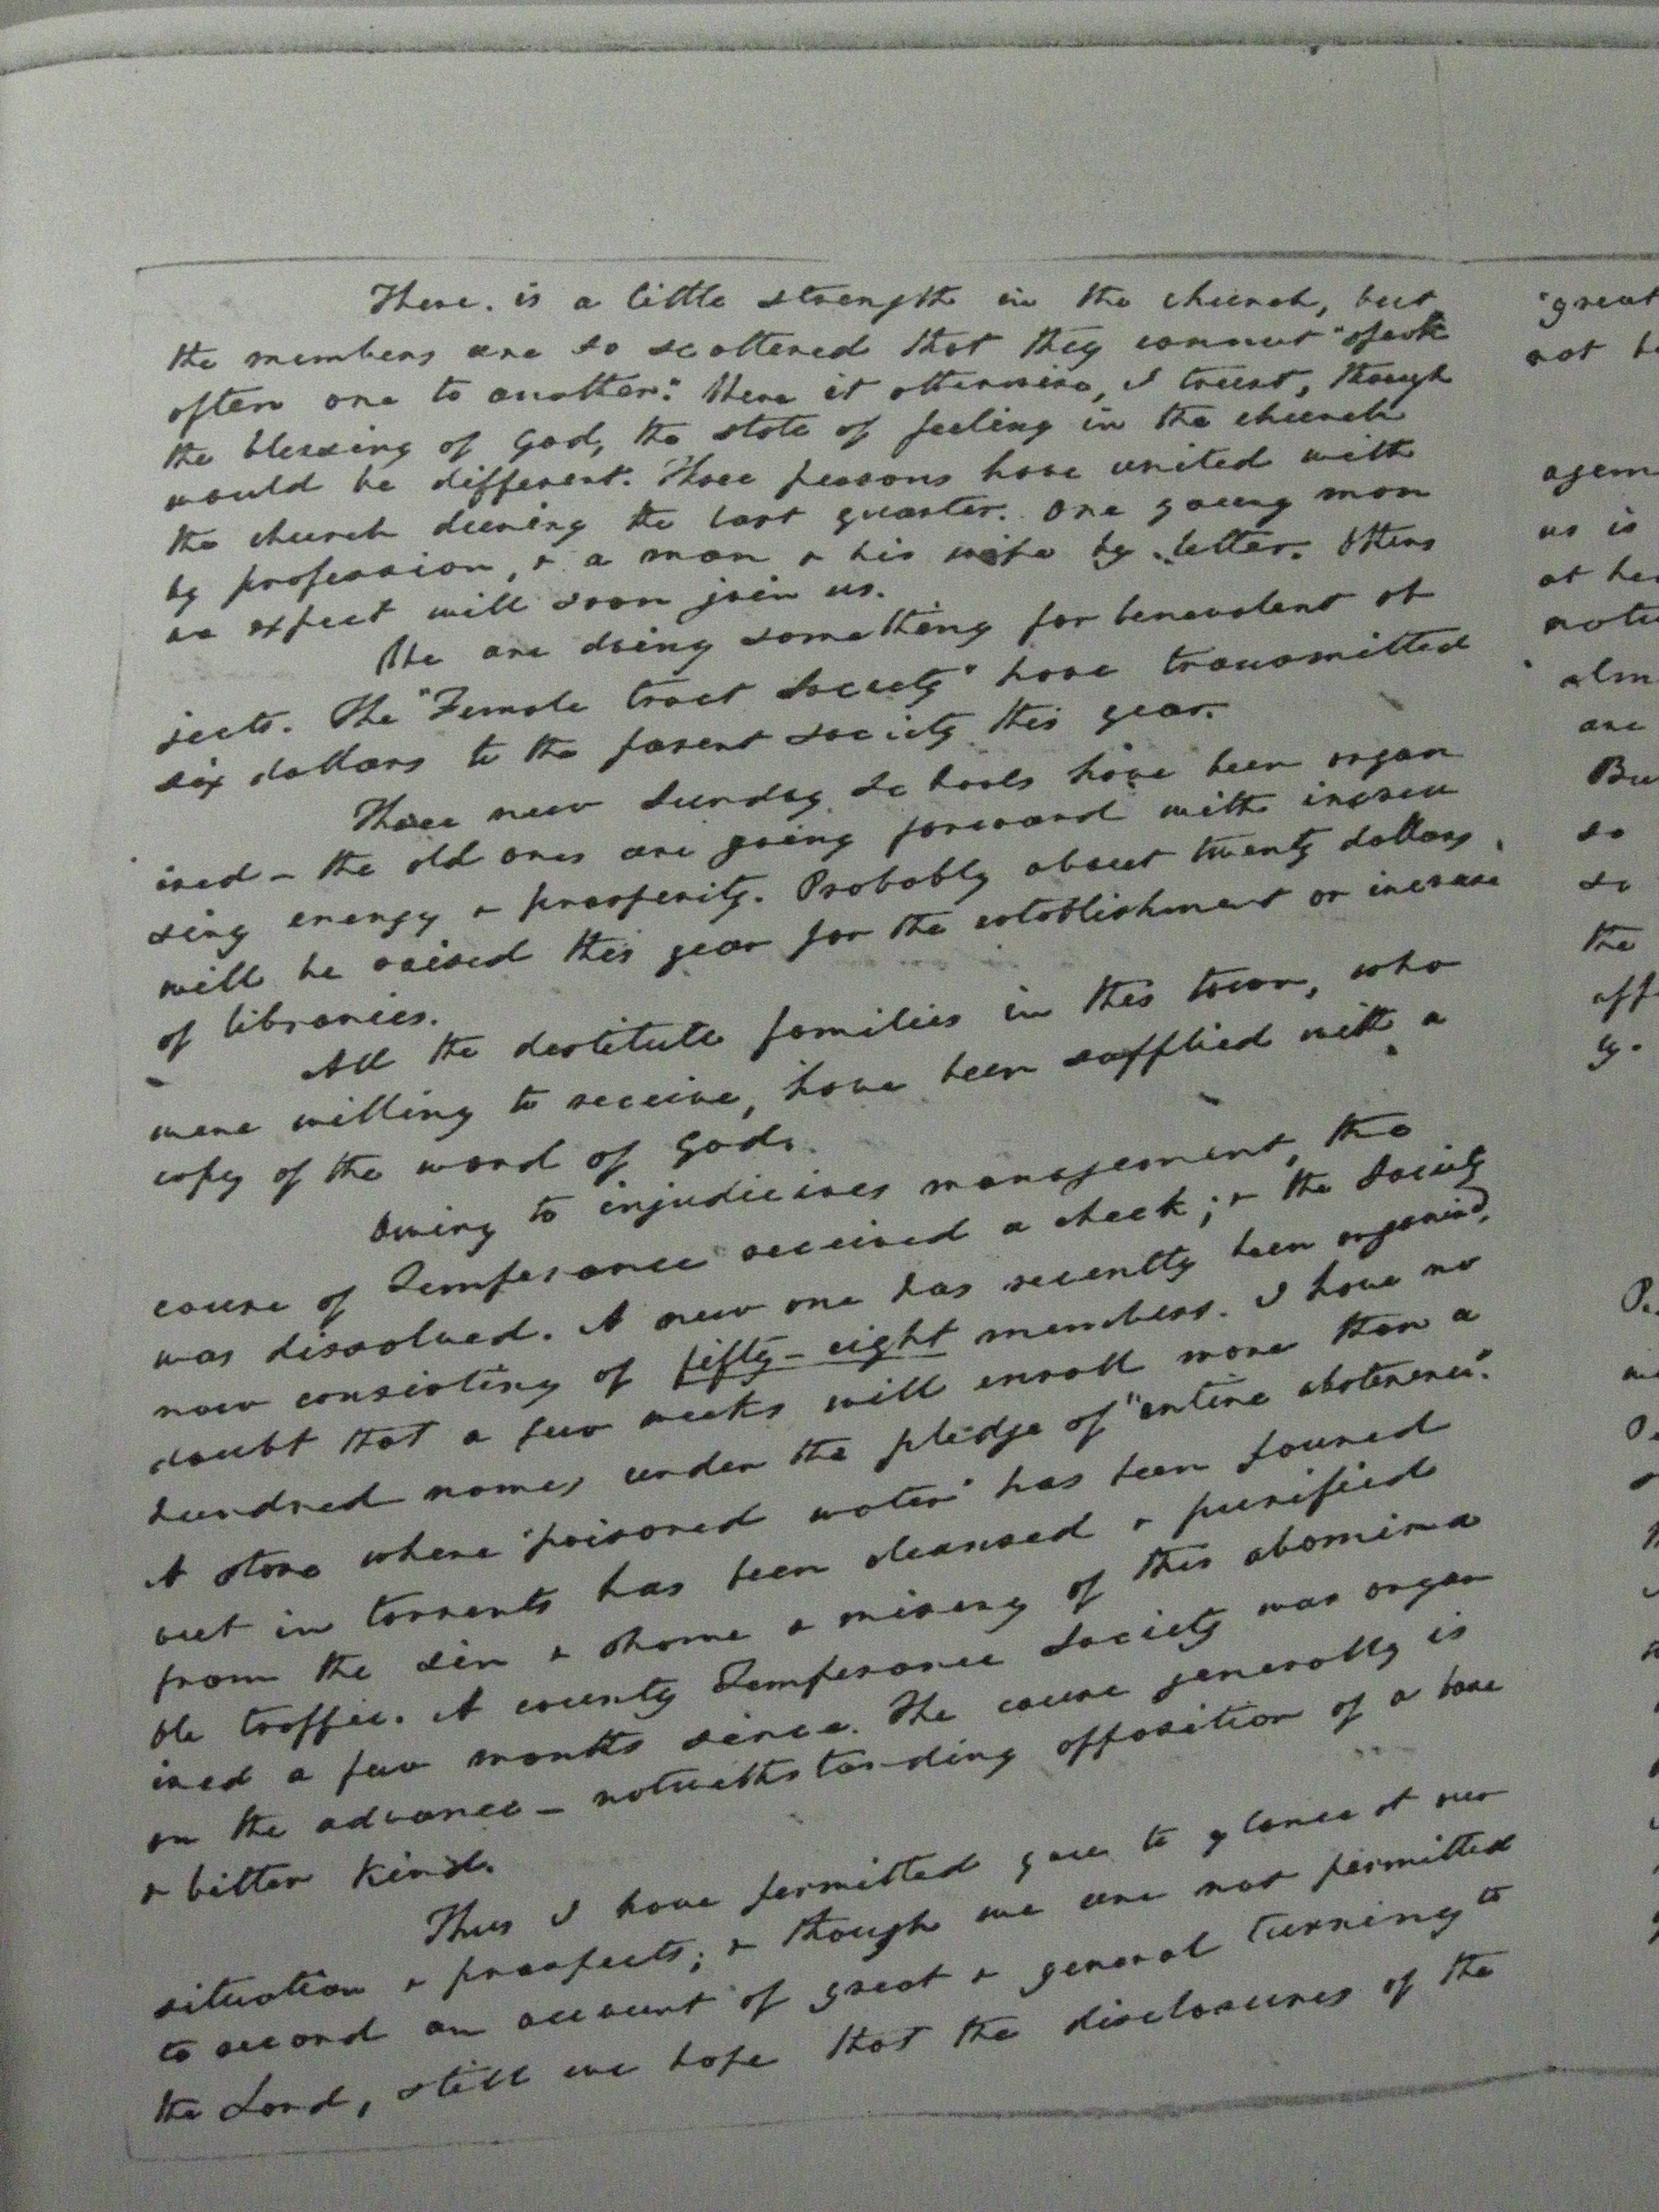 There. is a little strength in the church, but
the members are so scattered that they cannot "speak
often one to another." Were it otherwise, I trust, though
the blessing of God, the state of feeling in the church
would be different. Three persons have united with
the church during the last quarter. One young man
by profession, & a man & his wife by letter. Others
we expect will soon join us.
We are doing something for benevolent ob
jects. The "Female tract Society" have transmitted
six dollars to the parent society this year.
Three new Sunday Schools have been organ
ized - the old ones are going forward with increa
sing energy & prosperity. Probably about twenty dollars
will be raised this year for the establishment or increase
of libraries.
All the destitute families in this town, who
were willing to receive, have been supplied with a
copy of the word of God.
Owing to injudicious management, the
cause of Temperance received a check; & the Society
was dissolved. A new one has recently been organized,
now consisting of fifty-eight members. I have no
doubt that a few weeks will enroll more than a
hundred names under the pledge of "entire abstenence."
A store where "poisoned water" has been poured
out in torrents has been cleansed & purified
from the sin & shame & misery of this abomina
ble traffic. A county Temperance Society was organ
ized a few months since. The cause generally is
on the advance - notwithstanding opposition of a base
& bitter kind.
Thus I have permitted you to glance at our
situation & prospects; & though we are not permitted
to record an account of great & general turning to
the Lord, still we hope that the disclosures of the
great
not
us is
are
Bu
so
so
the